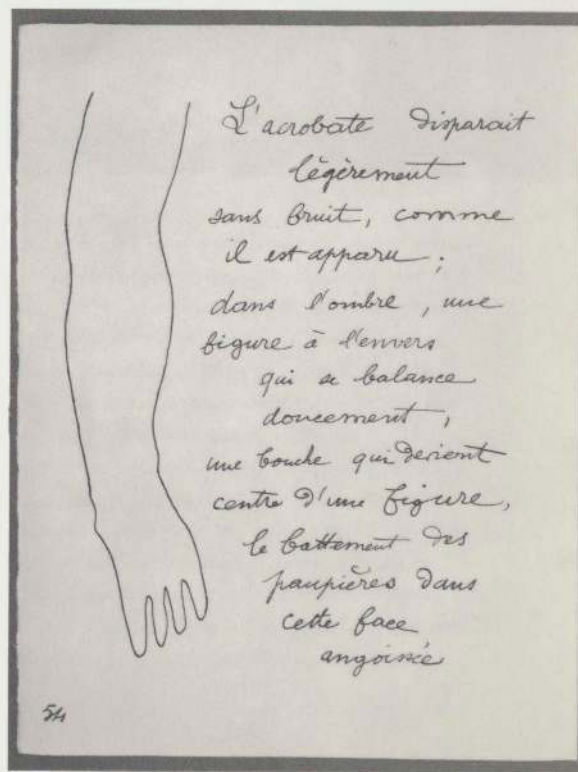 L'acrobate disparait
légèrement
sans bruit, comme
il est apparu ;
dans l'ombre, une
figure à l'envers
qui se balance
doucement,
une bouche qui devient
centre d'une figure,
le battement des
paupières dans
cette face
angoissée
54